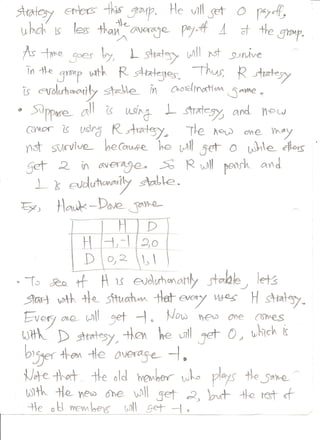 strategy enters this group. He will get 0 payoff,
which is less than the average payoff 1 of the group.
As time goes by, L strategy will not survive
in the group with R strategies. Thus, R strategy
is evolutionarily stable in coordination game.
• Suppose all is using L strategy, and new
comer is using R strategy. The new one may
not survive because he will get 0 while others
get 2 in average. So R will perish and
L is evolutionarily stable.
Ex, Hawk-Dove game
H D
H -1,-1 2,0
D 0,2 1,1
• To see if H is evolutionarily stable, let's
start with the situation that every uses H strategy.
Every one will get -1. Now new one comes
with D strategy, then he will get 0, which is
bigger than the average -1.
Note that the old member who plays the game
with the new one will get 2, but the rest of
the old members will get -1.